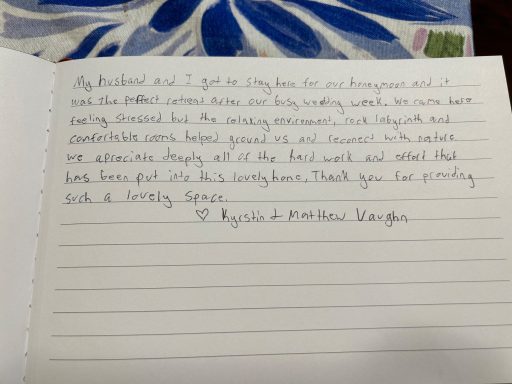 My husband and I got to stay here for our honeymoon and it
was the peffect retreat after our busy wedding week. We came here
feeling stressed but the relaxing environment, rock labyrinth and
comfortable rooms helped ground us and reconect with nature
we apreciate deeply all of the hard work and effort that
has been put into this lovely home, Thank you for providing
such a lovely space.
♡ Kyrstin & Matthew Vaughn